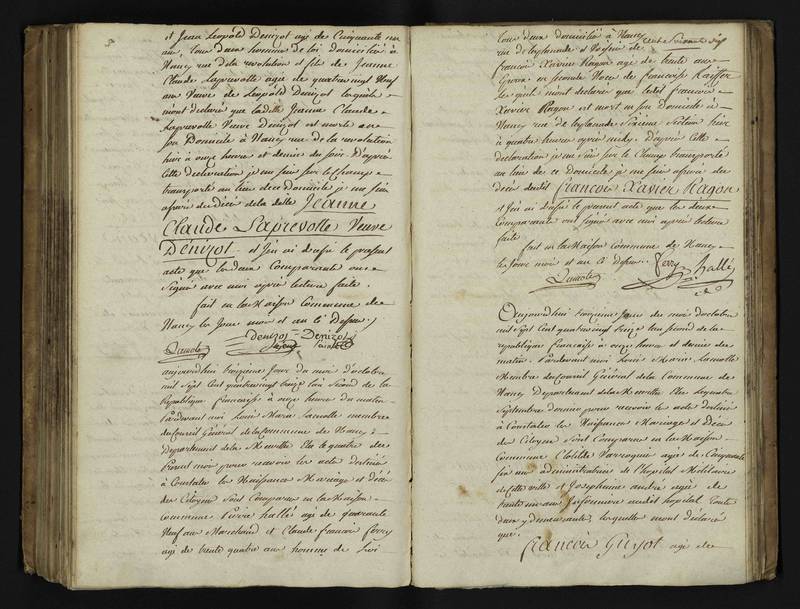 et Jean Léopold Denizot agé de Cinquante
an, tous deux homme de loi domicilié à
Nancy rue de la révolution et fils de Jeanne
Claude Laprevotte agée de quatrevingt Neuf
an Veuve de Léopold Denizot lesquels
m'ont declaré que ladite Jeanne Claude
Laprevotte Veuve Denizot est morte en
son Domicile à Nancy rue de la revolution
hier à onze heures et demies du soir. D'après
Cette declaration je me suis sur le Champ
transporté au lieu dece Domicile je me suis
assuré du décès de la ditte Jeanne
Claude Laprevotte Veuve
Denizot. et J'en ai dressé le présent
acte que les deux Comparants ont
Signé avec moi après lecture faite.
fait en la Maison Commune de
Nancy les Jour mois et an cy Dessus
Denizot Denizot
Lamotte
aujourdhui troizieme Jour du mois d'octobre
mil Sept Cent quatrevingt treize l'an Second de la
République française à onze heures du matin
Pardevant moi Louis Marie Lamotte membre
du Conseil Général de la Commune de Nancy
Departement de la Meurthe Elu le quatre de
present mois pour recevoir les actes destinés
à Constater les Naissance Mariage et décès
des Citoyens Sont Comparus en la Maison
Commune Pierre hallé agé de quarante
Neuf ans Marchand et Claude François Ferry
agé de trente quatre ans homme de Loi
tous deux domiciliés à Nancy
rue de l'esplanade et
francois Xavier Ragon agé de trente ans
Epoux en seconde Noces de françoise
lesquels m'ont declaré que ledit francois
Xavier Ragon est mort en son Domicile à
Nancy rue de l'esplanade Sixieme Section hier
à quatre heures après midy. D'après Cette
declaration je me suis sur le Champ transporté
au lieu de ce domicile je me suis assuré du
décès dudit francois Xavier Ragon
et J'en ai dressé le present acte que les deux
Comparants ont signé avec moi après lecture
faite
fait en la Maison Commune de Nancy
les Jour mois et an cy dessus. Ferry hallé
Lamotte
Aujourdhui troizieme Jour du mois d'octobre
mil Sept Cent quatrevingt treize l'an second de la
république française à onze heures et demies du
matin. Pardevant moi Louis Marie Lamotte
Membre du Conseil Général de la Commune de
Nancy Departement de la Meurthe Elu
Septembre dernier pour recevoir les actes destinés
à Constater les Naissances Mariages et Décès
des Citoyens Sont Comparus en la Maison
Commune Clotilde agée de Cinquante
six ans administratrice de l'hopital Militaire
de Cette ville et Josephine André agée de
trente un ans audit hopital toute
deux y demeurante, lesquelles m'ont déclaré
que.
francois Guyot agé de